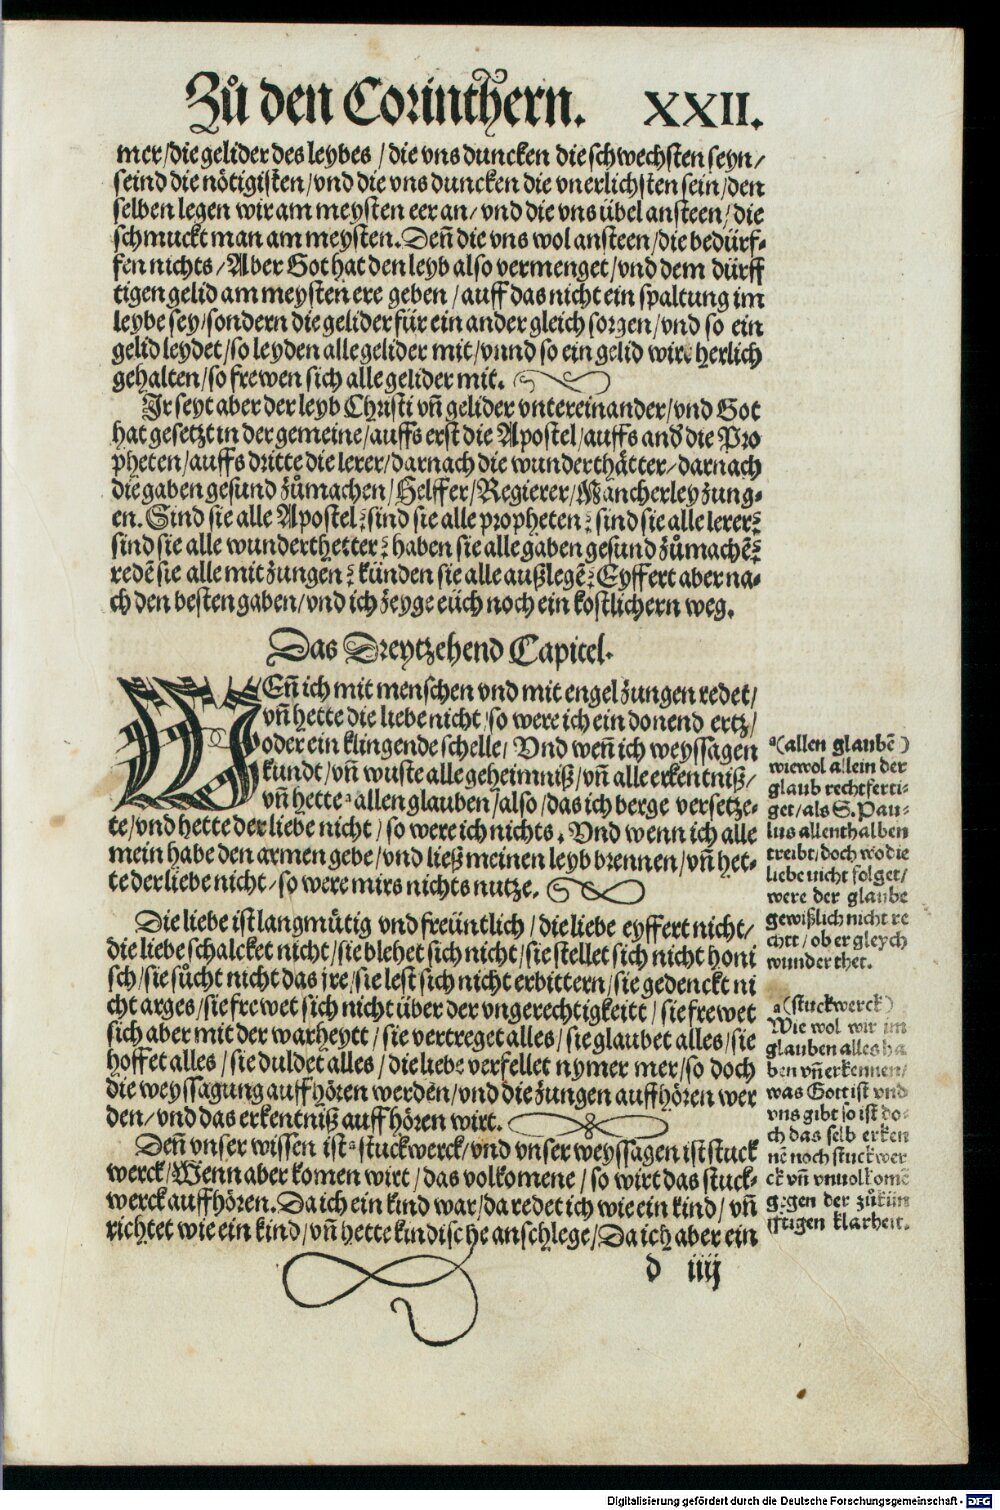 Zů den Corinthern. XXII.
mer/die gelider des leybes / die vns duncken die schwechsten seyn/
seind die nötigisten/vnd die vns duncken die vnerlichsten sein/den
selben legen wir am meysten eer an/ vnd die vns übel ansteen/die
schmuckt man am meysten. Deñ die vns wol ansteen/die bedürf-
fen nichts/Aber Got hat den leyb also vermenget/vnd dem dürff
tigen gelid am meysten ere geben / auff das nicht ein spaltung im
leybe sey/sondern die gelider für ein ander gleich sorgen/vnd so ein
gelid leydet/so leyden alle gelider mit/vnnd so ein gelid wirt herlich
gehalten/so frewen sich alle gelider mit.
Ir seyt aber der leyb Christi vñ gelider vntereinander/vnd Got
hat gesetzt in der gemeine/auffs erst die Apostel/auffs and̃ die Pro
pheten/auffs dritte die lerer/darnach die wunderthätter/darnach
die gaben gesund zůmachen/Helffer/Regierer/Mancherley zung-
en. Sind sie alle Apostel? sind sie alle propheten? sind sie alle lerer?
sind sie alle wunderthetter? haben sie alle gaben gesund zůmachẽ?
redẽ sie alle mit zungen? künden sie alle außlegẽ? Eyffert aber na-
ch den besten gaben/vnd ich zeyge eüch noch ein kostlichern weg.
Das Dreytzehend Capitel.
WEñ ich mit menschen vnd mit engel zungen redet/
vñ hette die liebe nicht/so were ich ein donend ertz/
oder ein klingende schelle/ Vnd weñ ich weyssagen
kundt/vñ wuste alle geheimniß/vñ alle erkentniß/
vñ hette ᵃallen glauben/also/das ich berge versetze-
te/vnd hette der liebe nicht/ so were ich nichts. Vnd wenn ich alle
mein habe den armen gebe/vnd ließ meinen leyb brennen/vñ het-
te der liebe nicht/so were mirs nichts nutze.
Die liebe ist langmütig vnd freüntlich / die liebe eyffert nicht/
die liebe schalcket nicht/sie blehet sich nicht/sie stellet sich nicht honi
sch/sie sůcht nicht das jre/sie lest sich nicht erbittern/sie gedenckt ni
cht arges/sie frewet sich nicht über der vngerechtigkeitt / sie frewet
sich aber mit der warheytt/ sie vertreget alles/ sie glaubet alles/sie
hoffet alles / sie duldet alles / die liebe verfellet nymer mer/so doch
die weyssagung auffhören werden/vnd die zungen auffhören wer
den/vnd das erkentniß auffhören wirt.
Deñ vnser wissen ist ᵃstuckwerck/vnd vnser weyssagen ist stuck
werck/Wenn aber komen wirt/das volkomene/ so wirt das stuck-
werck auffhören. Da ich ein kind war/da redet ich wie ein kind/ vñ
richtet wie ein kind/vñ hette kindische anschlege/Da ich aber ein
d iiij
ᵃ(allen glaubẽ)
wiewol allein der
glaub rechtferti-
get/als S. Pau-
lus allenthalben
treibt/doch wo die
liebe nicht folget/
were der glaube
gewißlich nicht re
chtt/ob er gleych
wunder thet.
ᵃ(stuckwerck)
Wie wol wir im
glauben alles ha
ben vñ erkennen/
was Gott ist vnd
vns gibt so ist do-
ch das selb erken
nẽ noch stuckwer
ck vñ vnuolkomẽ
gegen der zůkün
fftigen klarheit.
Digitalisierung gefördert durch die Deutsche Forschungsgemeinschaft - DFG